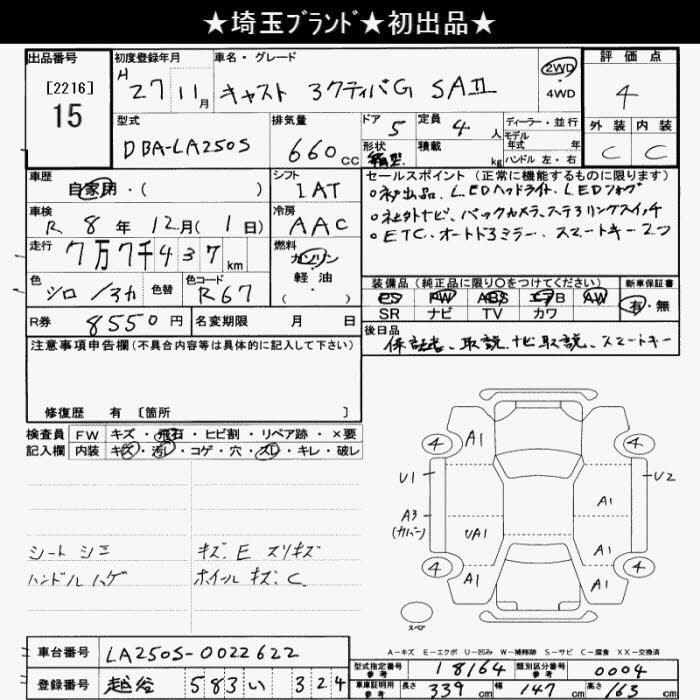 ★埼玉ﾌﾞﾗﾝﾄﾞ★初出品★
出品番号
[2216]
15
初度登録年月
H 27年 11月
車名・グレード
キャスト アクティバG SAⅡ
2WD
・
4WD
評価点
4
外装 内装
C C
型式
DBA-LA250S
排気量
660cc
ドア 5
定員 4人
形状 箱型
積載 kg
ディーラー・並行
モデル年式 年
ハンドル 左・右
車歴
自家用・( )
シフト
IAT
車検
R 8年 12月( 1日)
冷房
AAC
走行
7万7千437km
燃料
ガソリン
・
軽・油
( )
色
シロ/アカ
色替
色コード
R67
R券 8550円
名変期限 月 日
セールスポイント(正常に機能するものに限ります)
○初出品、LEDヘッドライト、LEDフォグ
○社外ナビ、バックカメラ、ステアリングスイッチ
○ETC、オートドアミラー、スマートキー2つ
装備品(純正品に限り○をつけてください)
PS PW ABS エアB AW
SR ナビ TV カワ
新車保証書
有・無
後日品
保証書、取説、ナビ取説、スマートキー
注意事項申告欄(不具合内容等は具体的に記入して下さい)
修復歴 有 [箇所 ]
検査員
記入欄
FW キズ・飛石・ヒビ割・リペア跡・×要
内装 キズ・汚レ・コゲ・穴・スレ・キレ・破レ
シート シミ
ハンドル ハゲ
キズ・E スリキズ
ホイール キズ・C
4 A1 4
U1 U2
A3
(カバー)
A1
UA1
A1
4 A1 A1 4
スペア
A-キズ E-エクボ U-凹み W-補修跡 S-サビ C-腐食 XX-交換済
車台番号 LA250S-0022622
登録番号 越谷 583 い 324
型式指定番号
参考
18164
類別区分番号
参考
0004
車庫証明用
参考
長さ 339cm 幅 147cm 高さ 163cm